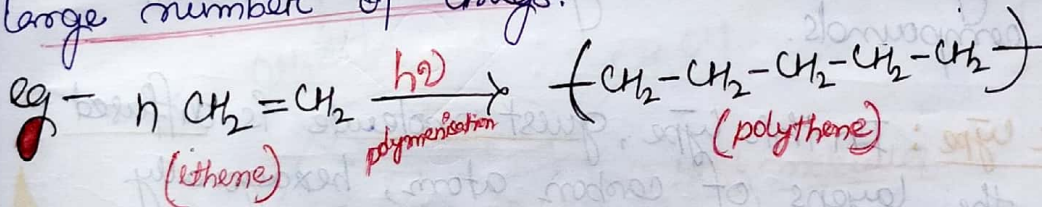 large number of
eg - n CH₂ = CH₂ hν polymerisation → (CH₂-CH₂-CH₂-CH₂-CH₂)
(ethene) (polythene)